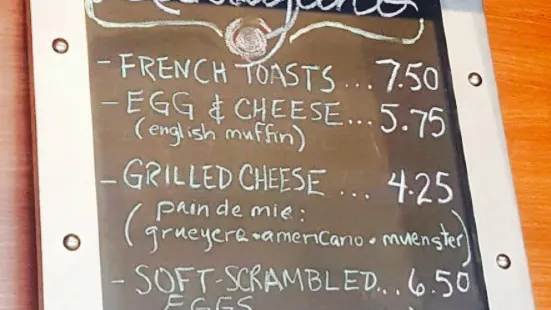 - FRENCH TOASTS ... 7.50
- EGG & CHEESE ... 5.75
(english muffin)
- GRILLED CHEESE ... 4.25
(pain de mie:
grueyere • americano • muenster)
- SOFT-SCRAMBLED .. 6.50
EGGS